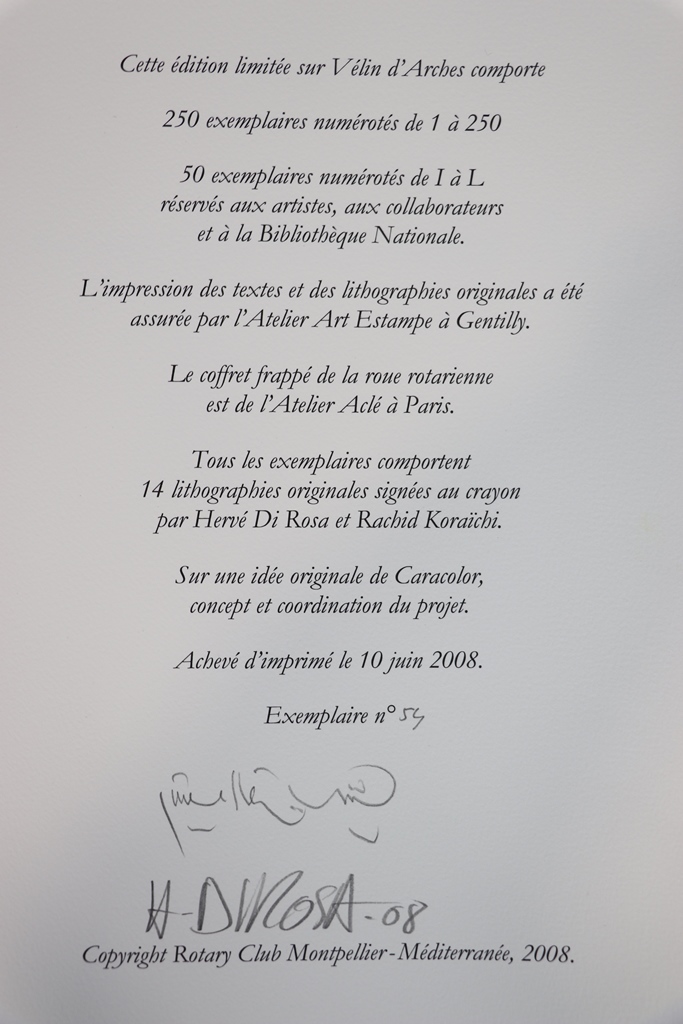 Cette édition limitée sur Vélin d'Arches comporte
250 exemplaires numérotés de 1 à 250
50 exemplaires numérotés de I à L
réservés aux artistes, aux collaborateurs
et à la Bibliothèque Nationale.
L'impression des textes et des lithographies originales a été
assurée par l'Atelier Art Estampe à Gentilly.
Le coffret frappé de la roue rotarienne
est de l'Atelier Aclé à Paris.
Tous les exemplaires comportent
14 lithographies originales signées au crayon
par Hervé Di Rosa et Rachid Koraïchi.
Sur une idée originale de Caracolor,
concept et coordination du projet.
Achevé d'imprimé le 10 juin 2008.
Exemplaire n°
H-DIROSA-08
Copyright Rotary Club Montpellier-Méditerranée, 2008.